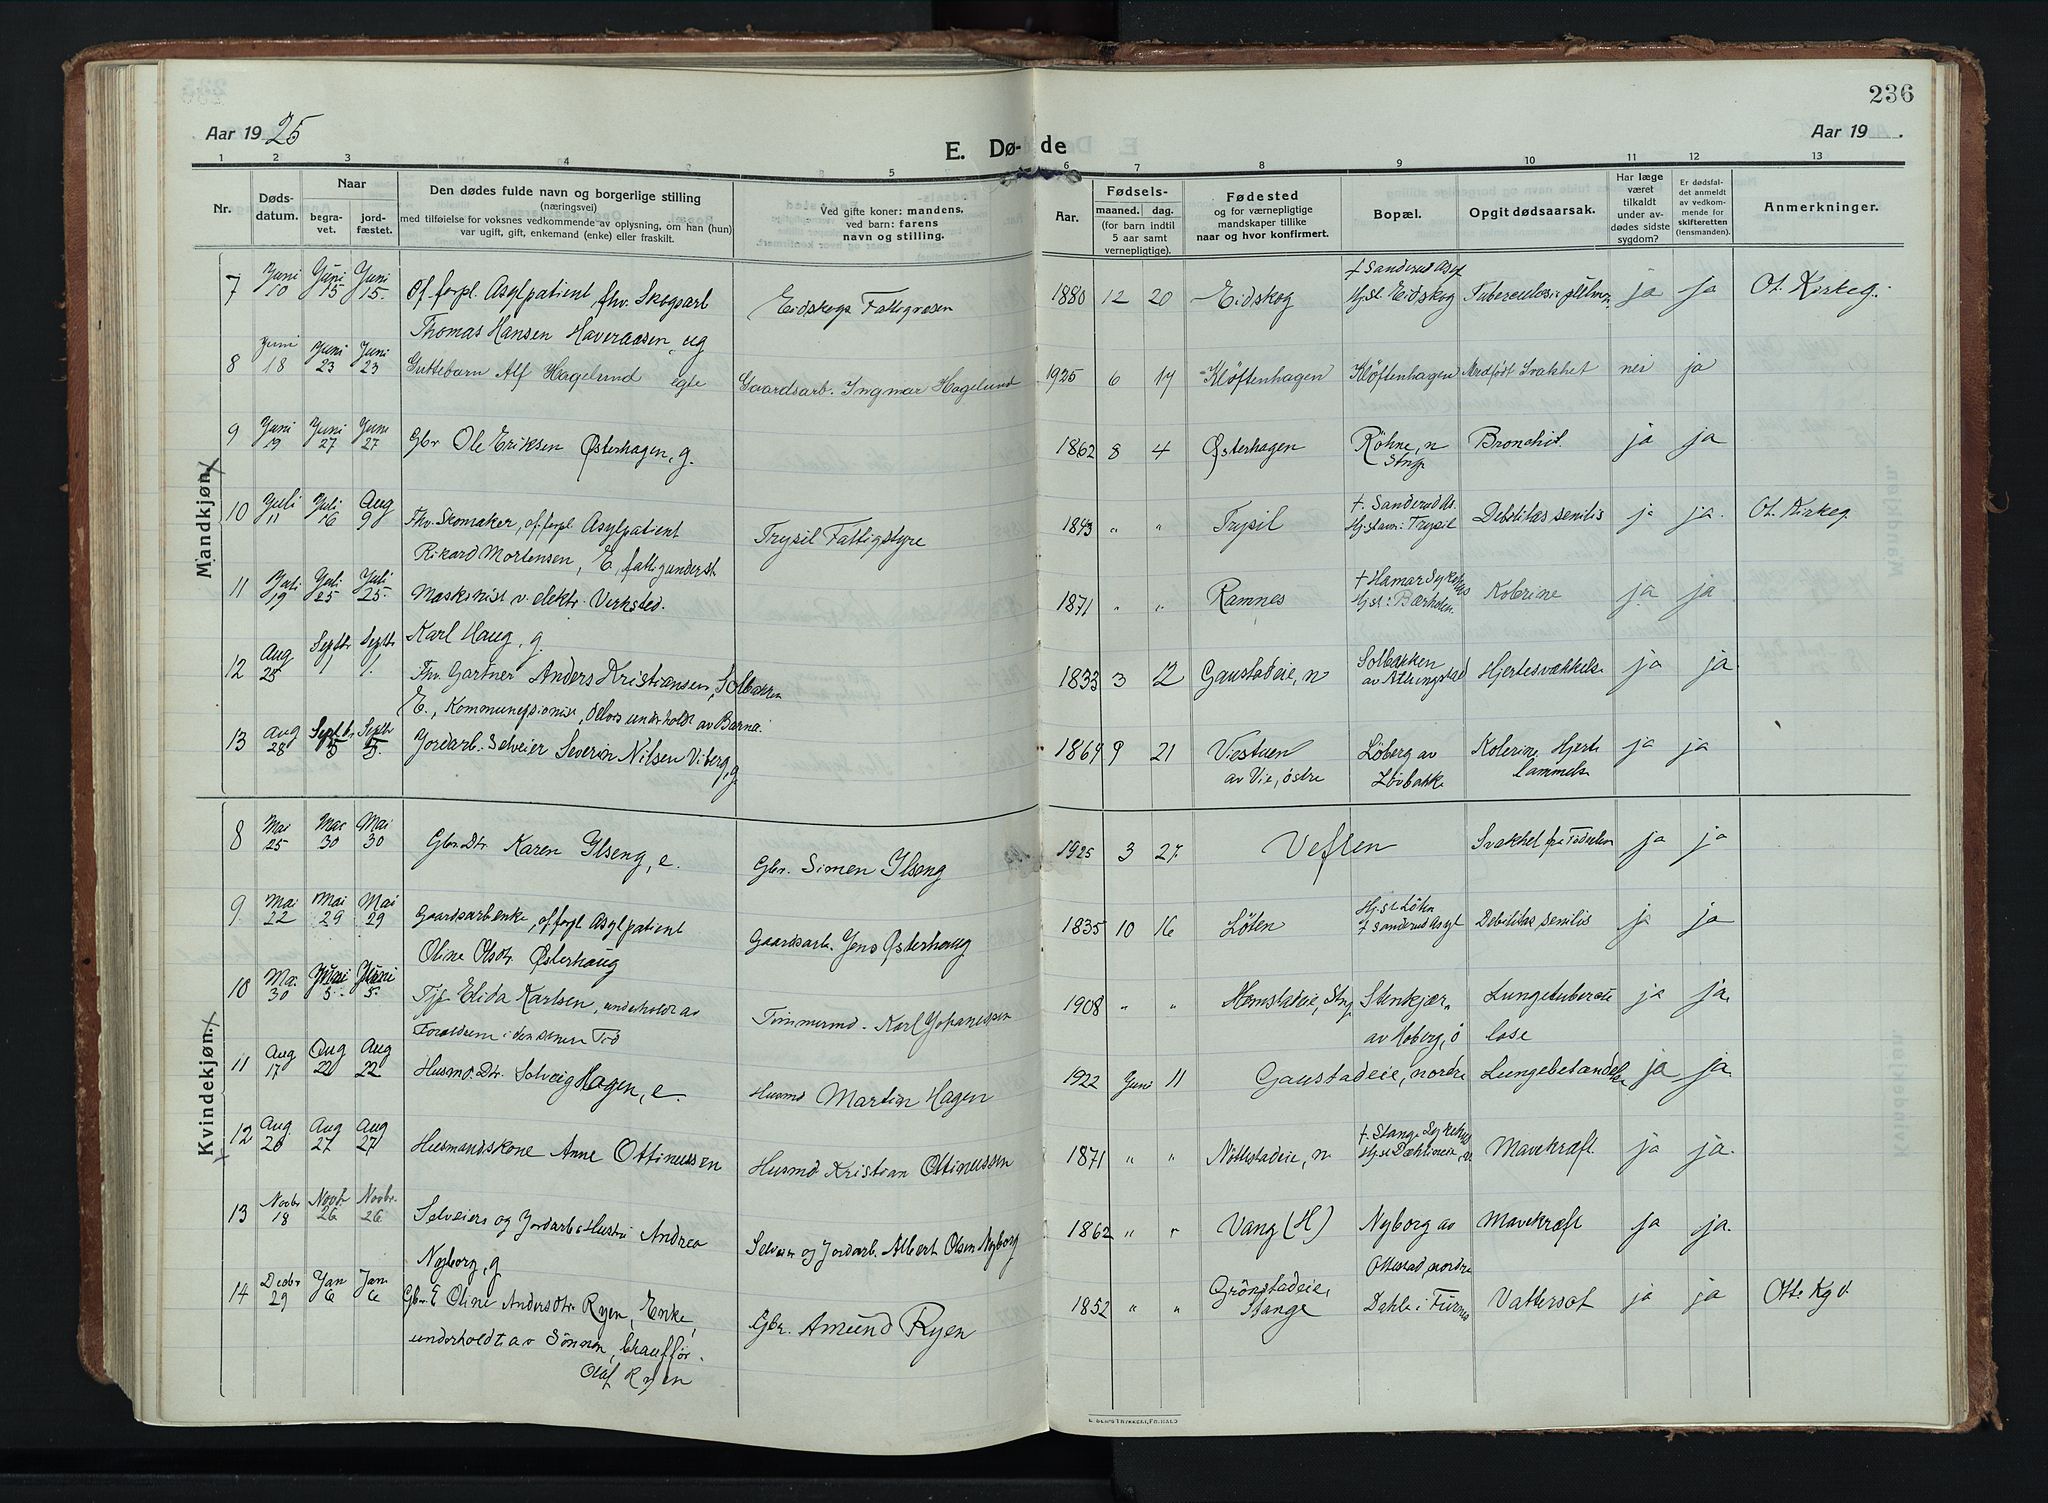 236
Aar 1925
E. Dø- de
Aar 19 .
1 2 3 4 5 6 7 8 9 10 11 12 13
Nr.
Døds-
datum.
Naar
begra-
vet.
jord-
fæstet.
Den dødes fulde navn og borgerlige stilling
(næringsvei)
med tilføielse for voksnes vedkommende av oplysning, om han (hun)
var ugift, gift, enkemand (enke) eller fraskilt.
Ved gifte koner: mandens,
ved barn: farens
navn og stilling.
Aar.
Fødsels-
maaned. dag.
(for barn indtil
5 aar samt
vernepligtige).
Fødested
og for værnepligtige
mandskaper tillike
naar og hvor konfirmert.
Bopæl.
Opgit dødsaarsak.
Har læge
været
tilkaldt
under av-
dødes sidste
sygdom?
Er dødsfal-
det anmeldt
av vedkom-
mende for
skifteretten
(lensmanden).
Anmerkninger.
Mandkjøn.
7 Juni 10 Juni 15 Juni 15. Of. forpl. Asylpatient, fhv. Skogsarb Eidskogs Fattigvæsen 1880 12 20 Eidskog † Sanderud Asyl
Hjst. Eidskog Tuberculosis pulmon ja ja Ot. Kirkeg.
Thomas Hansen Haveraasen, ug
8 Juni 18 Juni 23 Juni 23 Guttebarn Alf Hagelund egte Gaardsarb. Ingmar Hagelund 1925 6 17 Kløftenhagen Kløftenhagen Medfødt Svakhet nei ja
9 Juni 19 Juni 27 Juni 27 Gbr Ole Eriksen Østerhagen, g. 1862 8 4 Østerhagen Röhne, n
Stng. Bronchit. ja ja
10 Juli 11 Juli 16 Aug 9 Fhv. Skomaker, of. forpl Asylpatient Trysil Fattigstyre 1843 " " Trysil † Sanderud As.
Hjstavn: Trysil Debilitas senilis ja ja. Ot. Kirkeg.
Rikard Mortensen, E, fattigunderst
11 Juli 19 Juli 25 Juli 25. Maskinist v. elektr. Verksted. 1871 " " Ramnes † Hamar Sykehus
Hjst: Bærholen Kolerine ja ja
Karl Haug, g.
12 Aug 25 Septbr 1 Septbr 1. Fhv. Gartner Anders Kristiansen, Solbakken 1833 3 12 Gaustadeie, n Solbakken
av Arhingstad Hjertesvækkelse ja ja.
E., Kommunepsionist, delvis underholdt av Barna.
13 Aug 28 Septbr 5 Septbr 5. Jordarb. Selveier Severin Nilsen Viberg, g. 1869 9 21 Viestuen
av Vie, østre Löberg av
Løvbakke Kolerine, Hjerte
lammelse ja ja
Kvindekjøn.
8 Mai 25 Mai 30 Mai 30 Gbr. Dtr. Karen Ilseng, e. Gbr. Simen Ilseng 1925 3 27. Veflen Svakhet fra Fødselen ja ja
9 Mai 22 Mai 29 Mai 29 Gaardsarbenke, of forpl Asylpatient Gaardsarb. Jens Østerhaug 1835 10 16 Löten Hjst Løten
† Sanderud Asyl Debilitas senilis ja ja
Oline Olsdr. Østerhaug
10 Mai 30 Juni 5. Juni 5. Tjp. Elida Karlsen, underholdt av Tømmermd. Karl Johanssen 1908 " " Homstadeie, Stng. Stenkjær
av Hoberg, ö Lungetuberku
lose ja ja.
Forældrene i den senere Tid
11 Aug 17 Aug 22 Aug 22 Husmd. Dtr. Solveig Hagen, e. Husmd Martin Hagen 1922 Juni 11 Gaustadeie, nordre Lungebetændelse ja ja.
12 Aug 20 Aug 27 Aug 27 Husmandskone Anne Ottinussen Husmd Kristian Ottinussen 1871 " " Nøttestadeie, n. † Stange Sykehus
Hjst Dæhlineie, n. Mavekræft. ja ja.
13 Novbr 18 Novbr 26 Novbr. 26 Selveiers og Jordarb.s Hustru Andrea Selveier og Jordarb. Albert Olsen Nyborg 1862 " " Vang (H) Nyborg av Mavekræft ja ja.
Nyborg, g. Ottestad, nordre
14 Decbr 29 Jan 6 Jan 6 Gbr. E Oline Andersdtr Ryen, Enke, Gbr. Amund Ryen 1852 " " Grönstadeie,
Stange Dahle i Furnes Vattersot ja ja Otte. Kgd.
underholdt av Sønnen, Chauffør.
Olaf Ryen